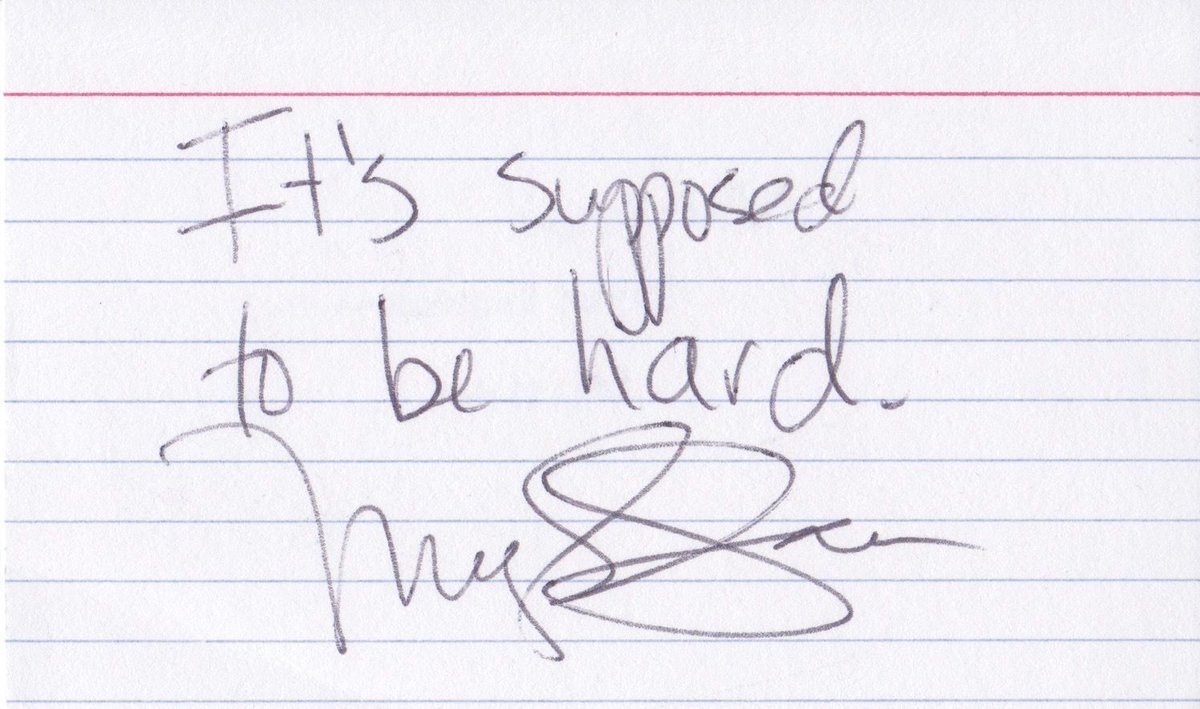 It's supposed
to be hard.